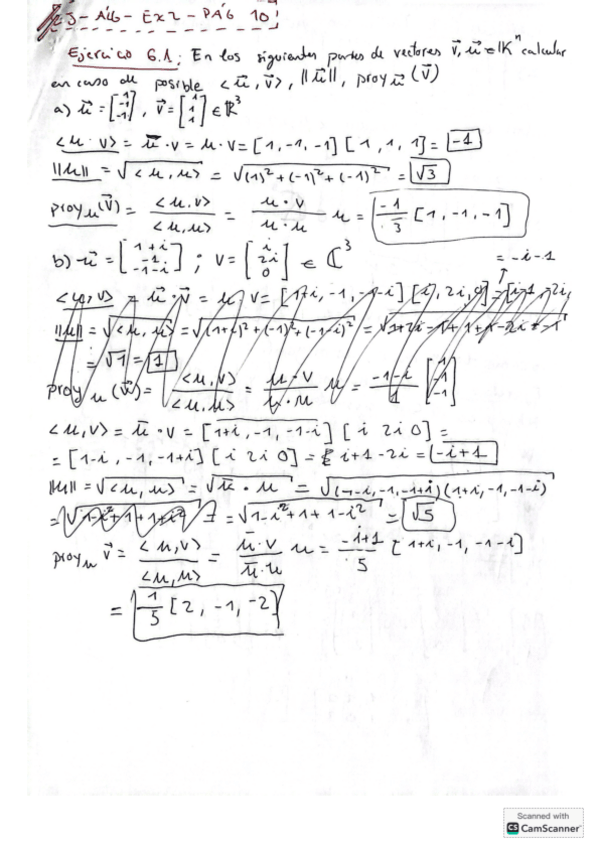 23-ALG-EX2-PÁG 10
Ejercicio 6.1; En los siguientes pares de vectores v⃗, u⃗ ∈ 𝕂ⁿ calcular
en caso de posible <u⃗, v⃗>, ||u⃗||, proy u⃗ (v⃗)
a) u⃗ = [1 -1 -1], v⃗ = [1 1 1] ∈ ℝ³
<u·v> = ū·v = u·v = [1, -1, -1] [1, 1, 1] = -1
||u|| = √<u, u> = √(1)²+(-1)²+(-1)² = √3
proy u (v⃗) = <u,v>/<u,u> = u·v/u·u u = -1/3 [1, -1, -1]
b) u⃗ = [1+i -1 -1-i]; v = [i 2i 0] ∈ ℂ³
= -i-1
<u,v> = ū·v⃗ = u v = [1+i, -1, -1-i] [i, 2i, 0] =
||u|| = √<u, u> = √(1+i)²+(-1)²+(-1-i)² =
= √1 = 1
proy u (v⃗) = <u,v>/<u,u> = u·v/u·u u = -1-i/1 [1 -1 -1]
<u,v> = ū·v = [1+i, -1, -1-i] [i 2i 0] =
= [1-i, -1, -1+i] [i 2i 0] = i+1-2i = -i+1
||u|| = √<u, u> = √ū·u = √(1-i, -1, -1+i)(1+i, -1, -1-i)
= √1-i²+1+1-i² = √5
proy u v⃗ = <u,v>/<u,u> = ū·v/ū·u u = -i+1/5 [1+i, -1, -1-i]
= 1/5 [2, -1, -2]
Scanned with
CS CamScanner